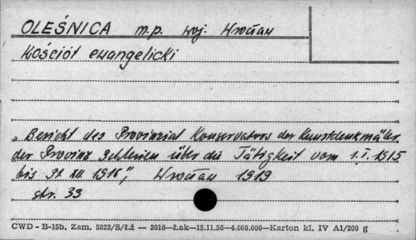 OLEŚNICA m.p. woj. Wrocław
Kościół ewangelicki
„Bericht des Provinzial Konservators der Kunstdenkmäler
der Provinz Schlesien über die Tätigkeit vom 1.I.1915
bis 31 XII 1916", Wrocław 1919
str. 39
CWD - B-15b. Zam. 5823/S/Łż — 2016—Łak—15.11.56—4.000.000—Karton kl. IV A1/200 g